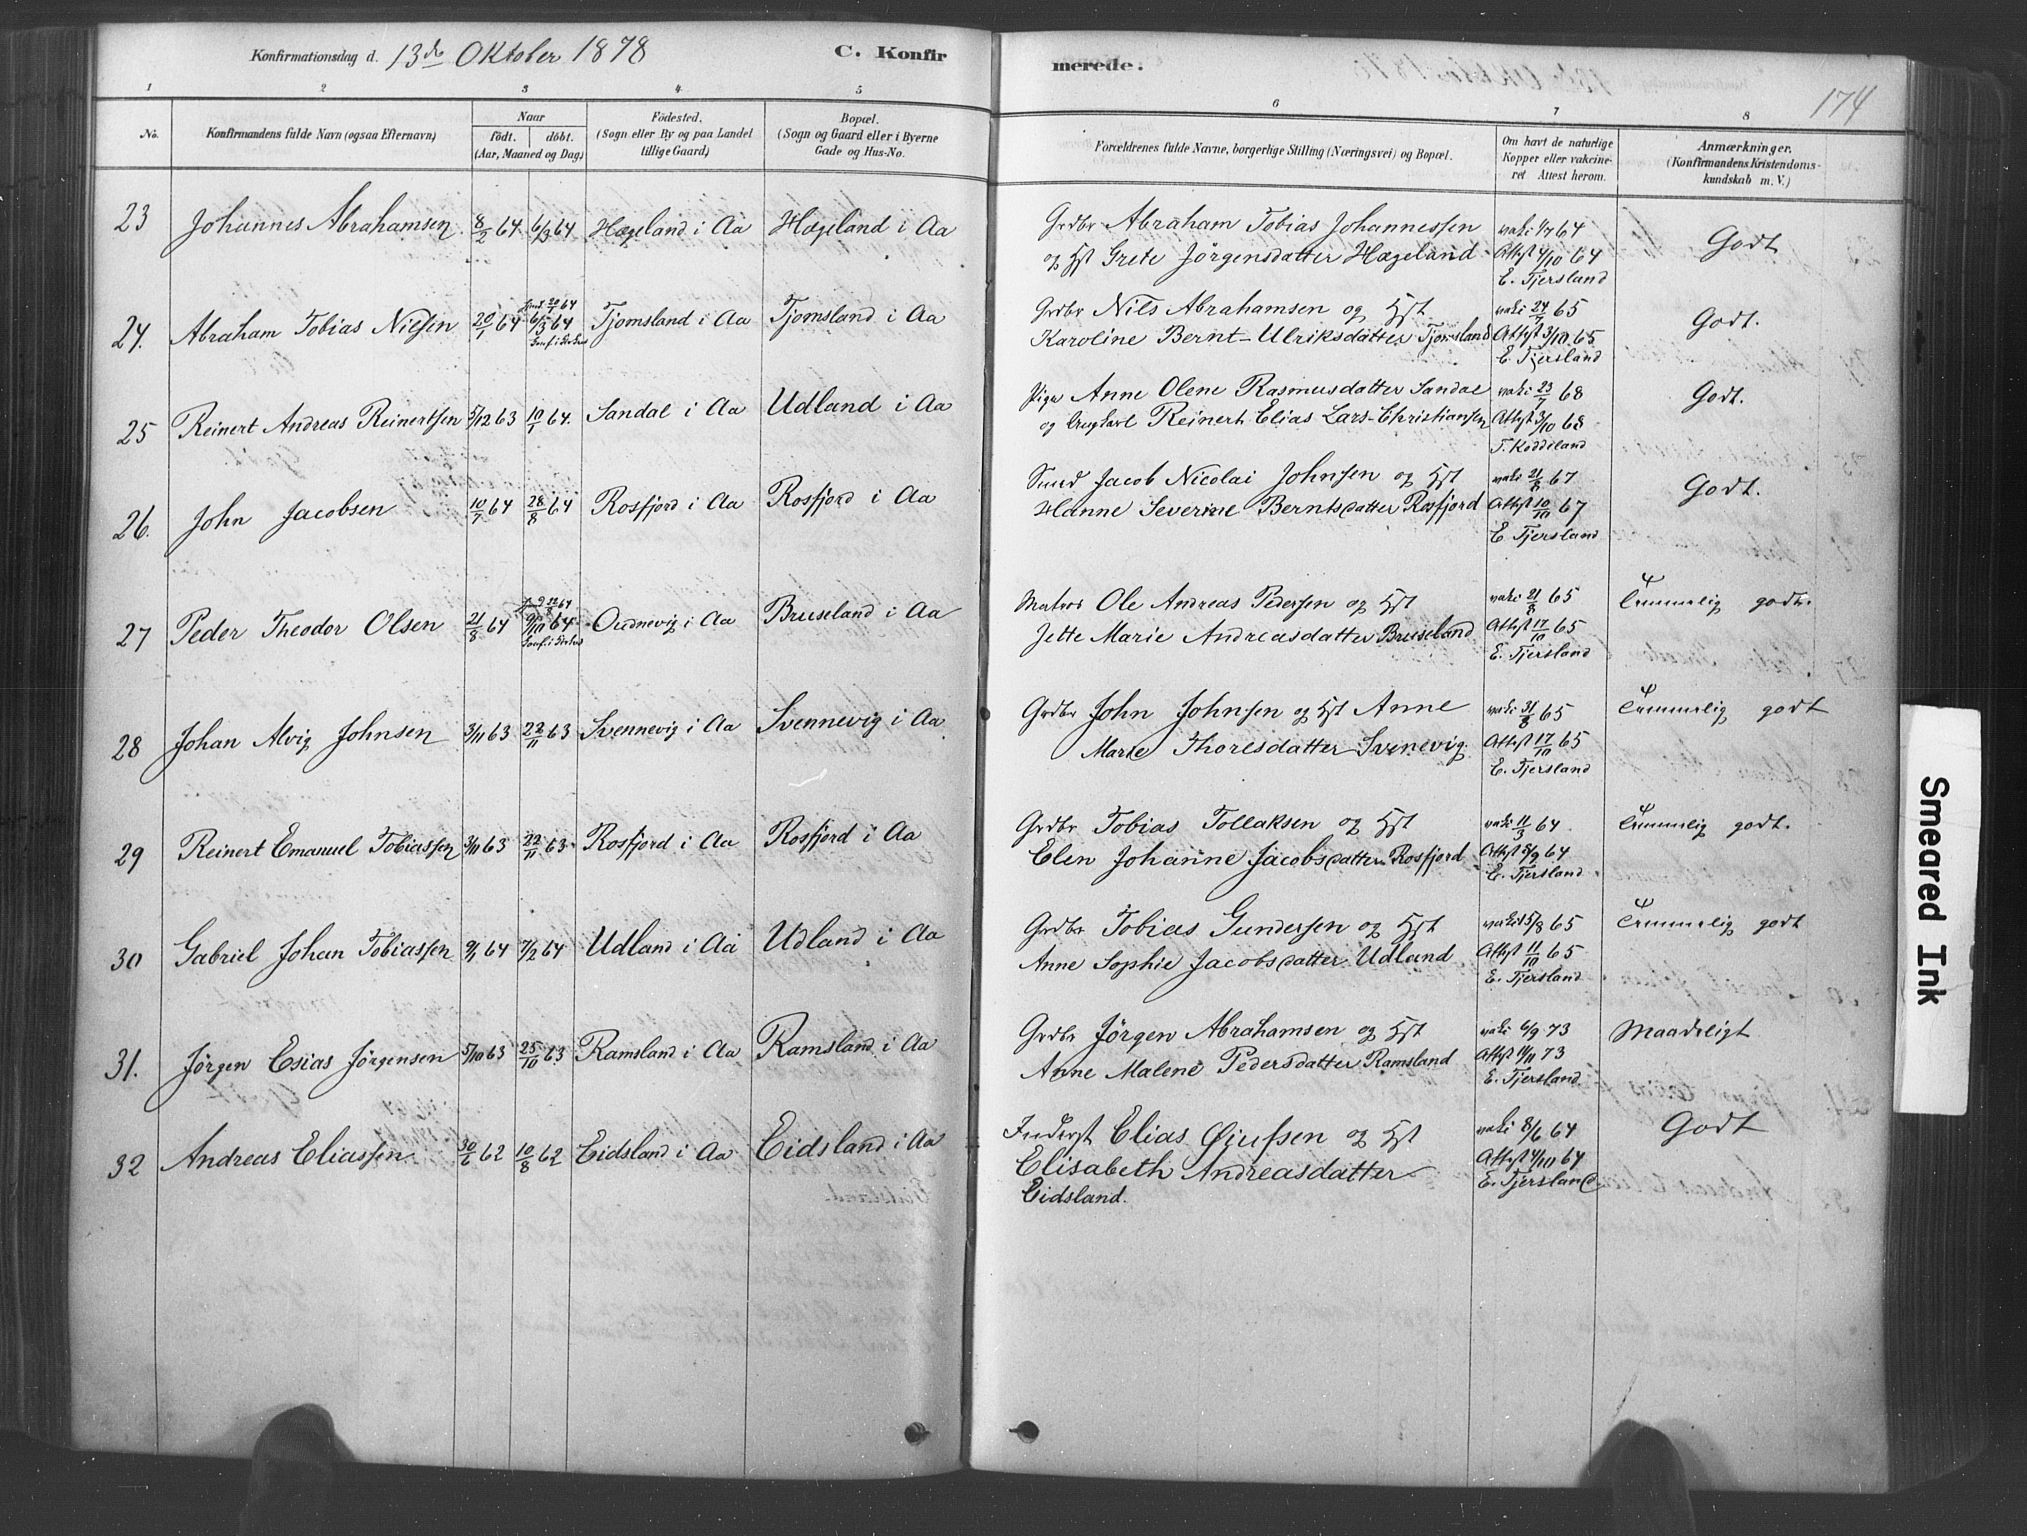 Konfirmationsdag d. 13de Oktober 1878
C. Konfirmerede.
174
1 2 3 4 5 6 7 8
No.
Konfirmandens fulde Navn (ogsaa Efternavn)
Naar
födt. döbt.
(Aar, Maaned og Dag)
Födested.
(Sogn eller By og paa Landet
tillige Gaard)
Bopæl.
(Sogn og Gaard eller i Byerne
Gade og Hus-No.
Forældrenes fulde Navne, borgerlige Stilling (Næringsvei) og Bopæl.
Om havt de naturlige
Kopper eller vakcine-
ret Attest herom.
Anmærkninger.
(Konfirmandens Kristendoms-
kundskab m. V.)
23 Johannes Abrahamsen 8/2 64 6/3 64 Hægeland i Aa Hægeland i Aa
Grdbr Abraham Tobias Johannessen
og Hst Grete Jörgensdatter Hægeland
vaki 1/7 64
Attest 4/10 64
E. Tjersland
Godt
24. Abraham Tobias Nilsen 20/1 64 6/3 64 Tjomsland i Aa Tjomsland i Aa
Grdbr Nils Abrahamsen og Hst
Karoline Bernt-Ulriksdatter Tjomsland
vaki 24/7 65
Attest 3/10 65
E. Tjersland
Godt.
25 Reinert Andreas Reinertsen 5/12 63 10/1 64. Sandal i Aa Udland i Aa
Pige Anne Olene Rasmusdatter Sandal
og Ungkarl Reinert Elias Lars-Christiansen
vaki 23/7 68
Attest 3/10 68
T. Koddeland
Godt.
26. John Jacobsen 10/7 64 28/8 64 Rosfjord i Aa Rosfjord i Aa
Smed Jacob Nicolai Johnsen og Hst
Hanne Severine Berntsdatter Rosfjord
vaki 21/8 67
Attest 10/10 67
E. Tjersland
Godt.
27 Peder Theodor Olsen 21/8 64 9/10 64 Oudnevig i Aa Bruseland i Aa
Matros Ole Andreas Pedersen og Hst
Jette Marie Andreasdatter Bruseland
vaki 21/8 65
Attest 17/10 65
E. Tjersland
Temmelig godt.
28 Johan Alvig Johnsen 3/11 63 22/11 63 Svennevig i Aa Svennevig i Aa
Grdbr John Johnsen og Hst Anne
Marie Thoresdatter Svenevig.
vaki 31/8 65
Attest 17/10 65
E. Tjersland
Temmelig godt
29 Reinert Emanuel Tobiassen 3/11 63 22/11 63 Rosfjord i Aa Rosfjord i Aa
Grdbr Tobias Tollaksen og Hst
Elen Johanne Jacobsdatter Rosfjord
vaki 11/3 64
Attest 8/9 64
E. Tjersland
Temmelig godt.
30 Gabriel Johan Tobiassen 9/1 64 7/2 64 Udland i Aa Udland i Aa
Grdbr Tobias Gundersen og Hst
Anne Sophie Jacobsdatter Udland
vaki 15/8 65
Attest 11/10 65
E. Tjersland
Temmelig godt
31. Jørgen Esias Jørgensen 5/10 63 25/10 63 Ramsland i Aa Ramsland i Aa
Grdbr Jörgen Abrahamsen og Hst
Anne Malene Pedersdatter Ramsland
vaki 6/9 73
Attest 11/11 73
E. Tjersland
Maadeligt
32 Andreas Eliassen 30/6 62 10/8 62 Eidsland i Aa Eidsland i Aa
Inderst Elias Øiufsen og Hst
Elisabeth Andreasdatter
Eidsland.
vaki 8/6 64
Attest 4/10 64
E. Tjersland
Godt
Smeared Ink